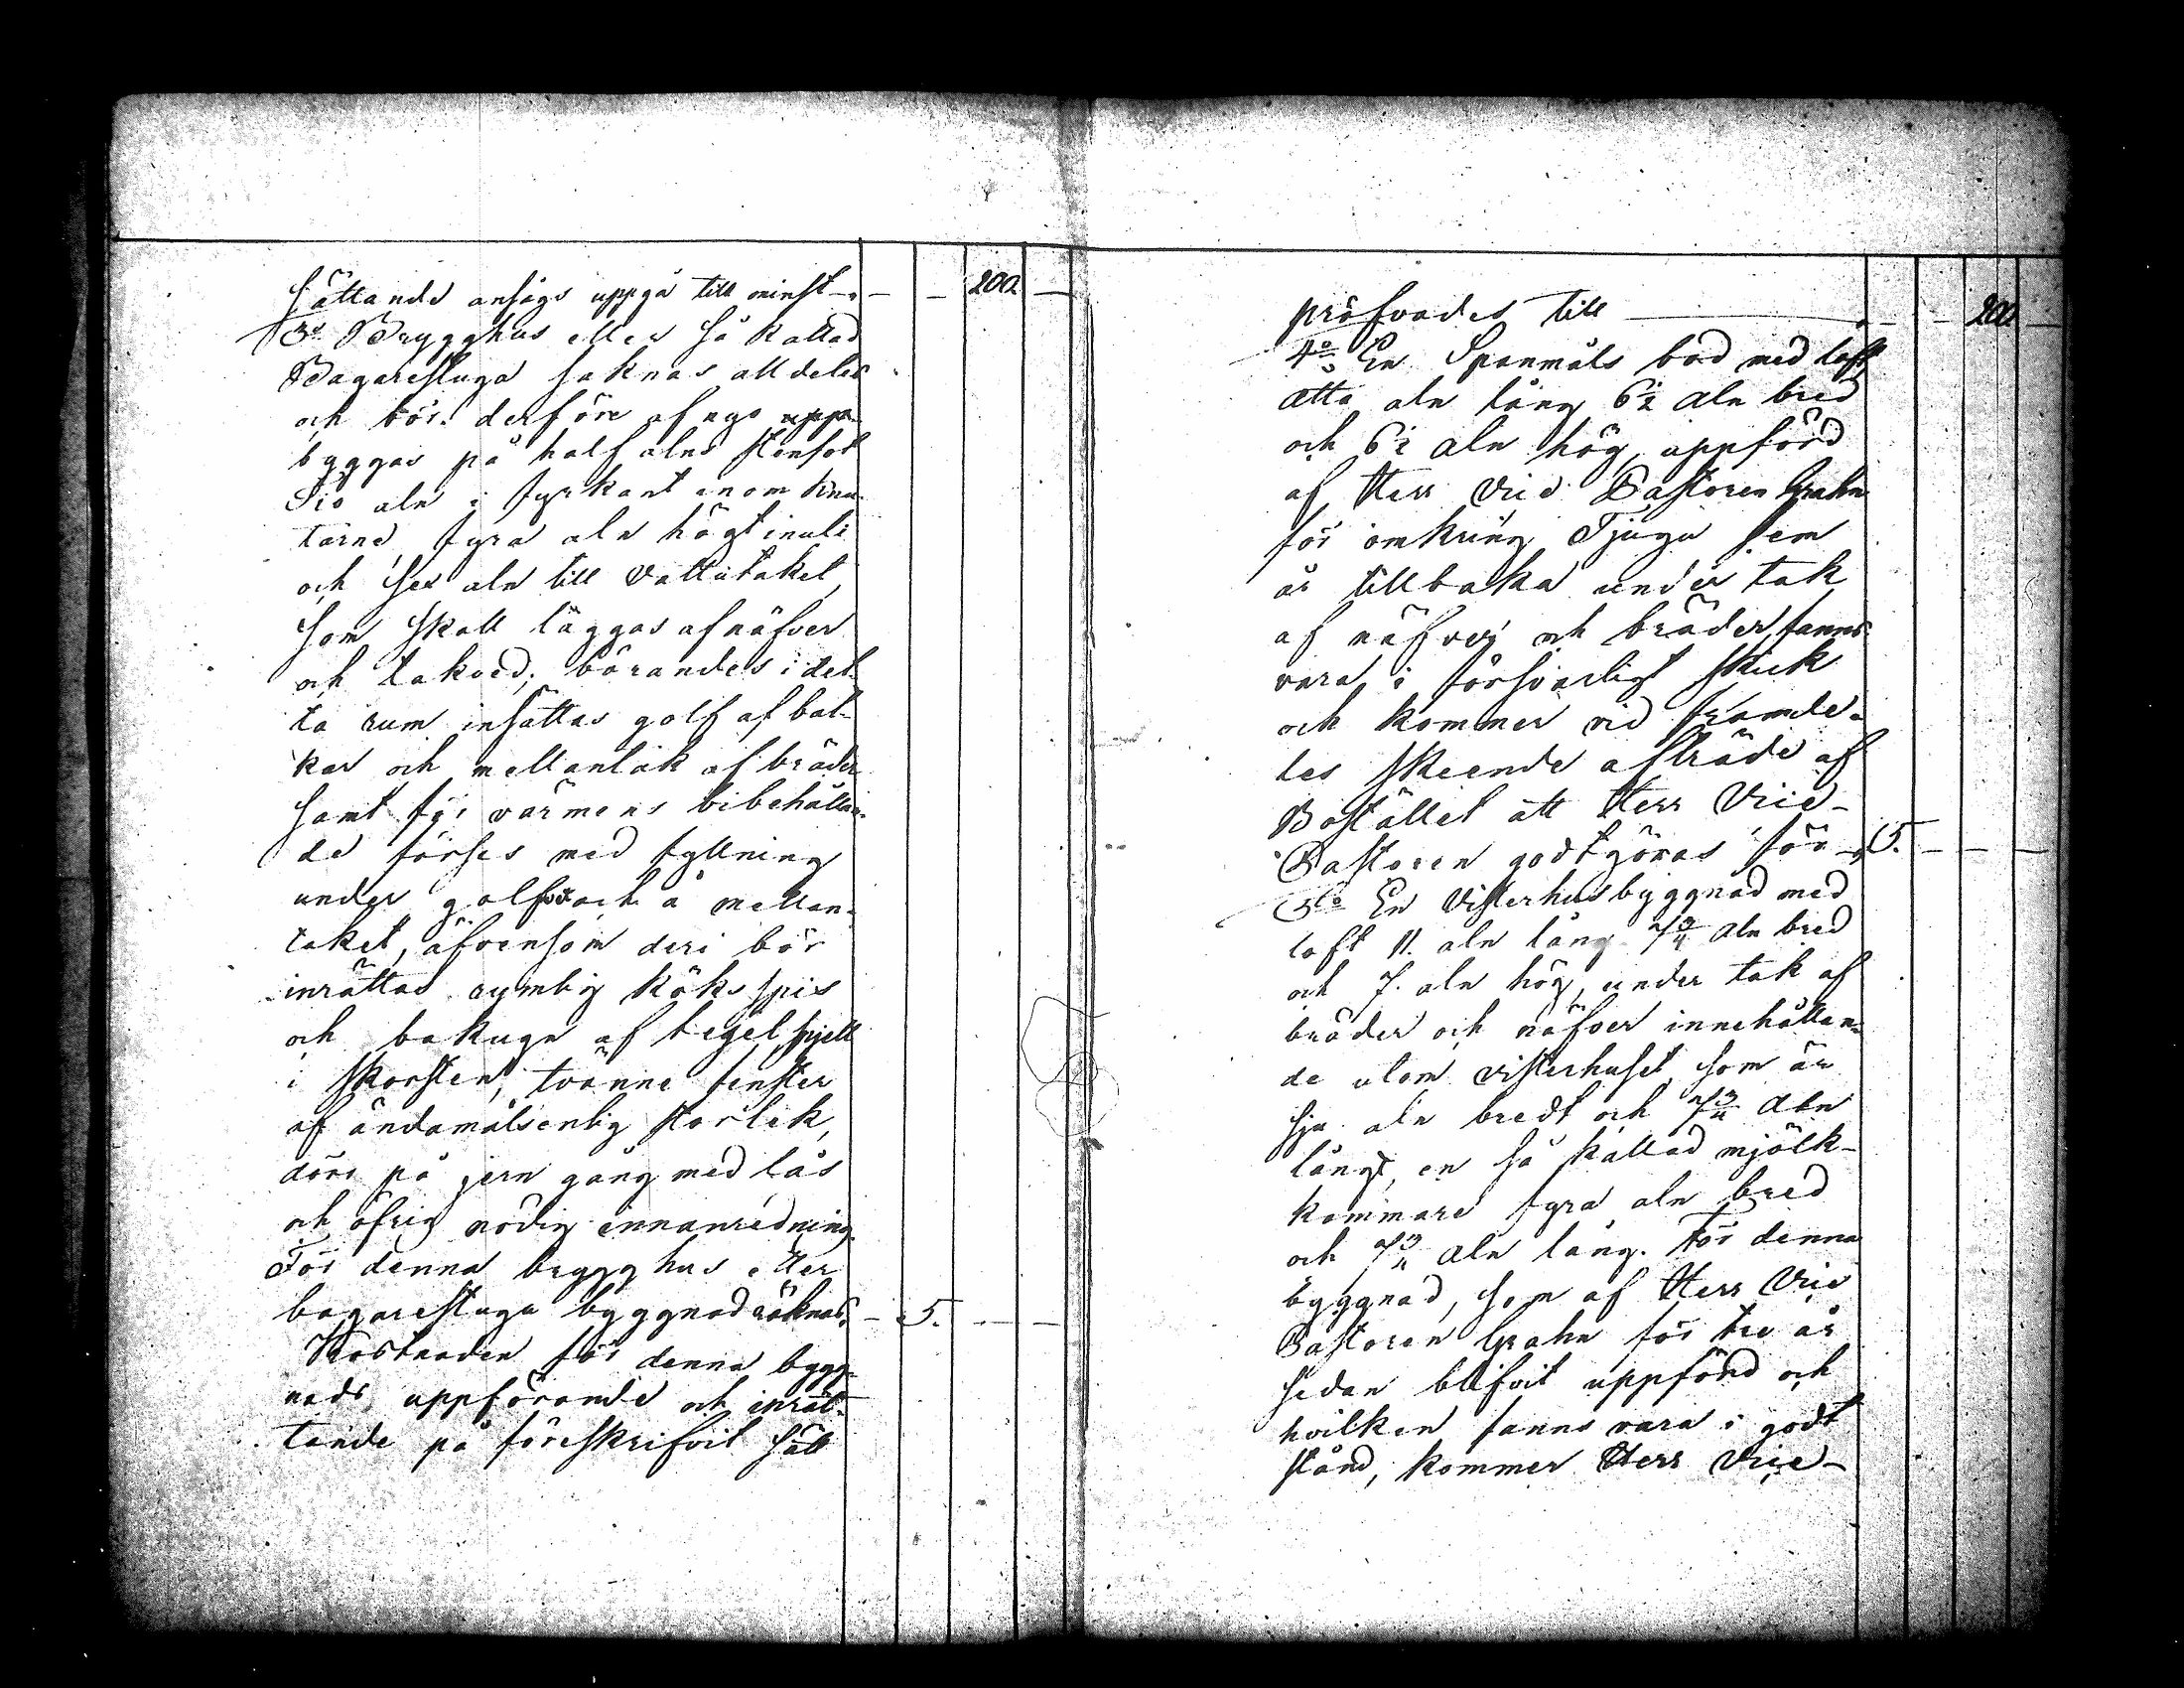 sättande ansågs uppgå till minst — — 200 —
3o Brygghus eller så kallad
Bagarestuga saknas alldeles
och bör derföre af nyo upp-
byggas på half alns stenfot
Tio aln i fyrkant inom knu-
tarne, fyra aln högt inuti
och sex aln till vattutaket,
som skall läggas af näfver
och takved; börandes i det-
ta rum insättas golf af bal-
kar och mellantak af bräder
samt för värmens bibehållan-
de förses med fyllning
under golfvet och å mellan-
taket, äfvensom deri bör
inrättas rymlig köks spis
och bakugn af tegel, spjell
i skorsten, tvänne fenster
af ändamålsenlig storlek,
dörr på jern gång med lås
och öfrig nödig innanredning.
För denna brygghus eller
bagarestuga byggnad räknas — 5. — —
Kostnaden för denna bygg-
nads uppförande och inrät-
tande på föreskrifvit sätt
pröfvades till — — 200 —
4o En Spanmåls bod med loft,
åtta aln lång 6½ aln bred
och 6½ aln hög, uppförd
af Herr Vice Pastoren Grahn
för omkring Tjugu fem
år tillbaka under tak
af näfver och bräder, fanns
vara i försvarligt skick
och kommer vid framde-
les skeende afträde af
Bostället att Herr Vice-
Pastoren godtgöras för — 5. — — —
5to En Visterhusbyggnad med
loft 11. aln lång 7¾ aln bred
och 7. aln hög, under tak af
bräder och näfver innehållan-
de utom visterhuset, som är
sju aln bredt och 7¾ aln
långt, en så kallad mjölk-
kammare fyra aln bred
och 7¾ aln lång. För denna
byggnad, som af Herr Vice
Pastoren Grahn för tre år
sedan blifvit uppförd och
hvilken fanns vara i godt
stånd, kommer Herr Vice-